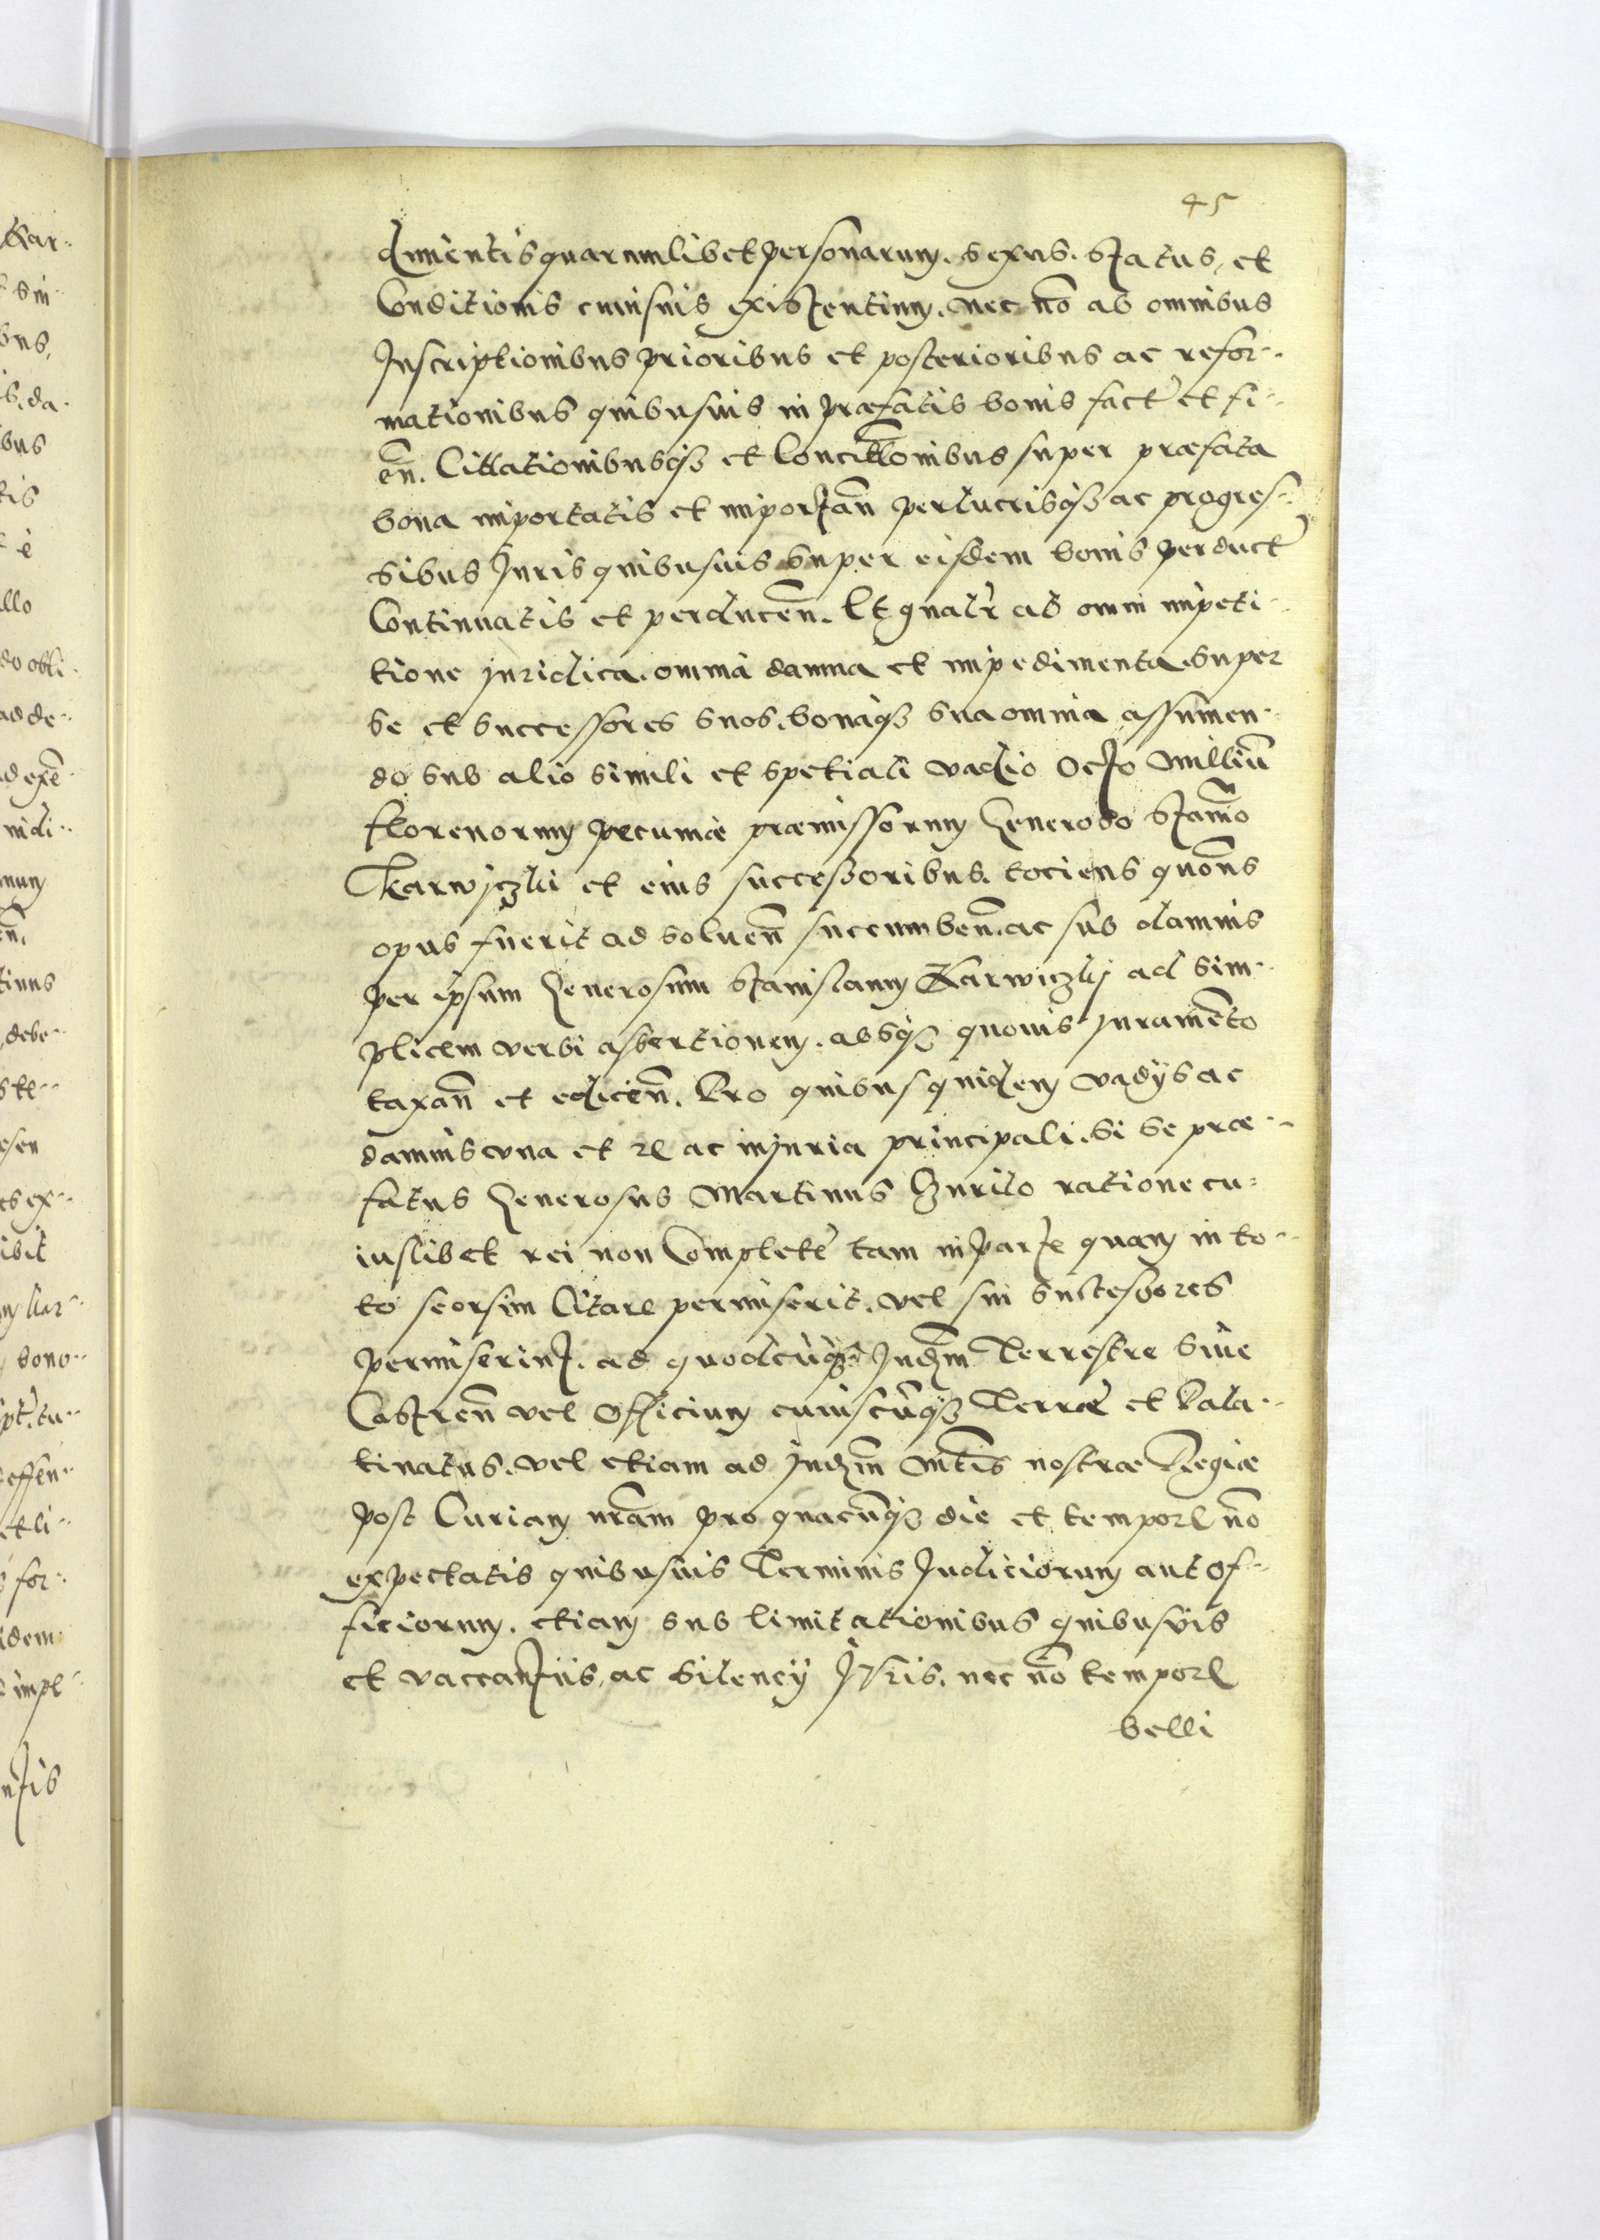 45
dimentis quarumlibet personarum. sexus. status, et
Conditionis cuiusuis existentium. nec nō ab omnibus
Inscriptionibus prioribus et posterioribus ac refor-
mationibus quibusuis in præfatis bonis fact et fi-
en̄. Cittationibusq3 et Concitt̄onibus super præfata
bona importatis et importan̄ perlucrisq3 ac progres-
sibus Juris quibusuis super eisdem bonis perduct
Continuatis et perducen̄. Et gnalr ab omni impeti-
tione juridica. omnia damna et impedimenta. super
se et successores suos. bonaq3 sua omnia assumen-
do sub alio simili et spetiali vadio Octo milliū
florenorum pecuniæ præmissorum Generoso Stan̄o
Karwiczki et eius successoribus. tociens quōns
opus fuerit ad soluen̄ succumben̄. ac sub damnis
per ipsum Generosum Stanislaum Karwiczkj ad sim-
plicem verbi assertionem. absq3 quouis juramēto
taxan̄ et edicen̄. Pro quibus quidem vadijs ac
damnis vna et re ac injuria principali. Si se præ-
fatus Generosus Martinus Gurilo ratione cu-
iuslibet rei non Complete tam in parte quam in to-
to seorsim Citare permiserit. vel sui successores
permiserint. ad quodcūq3 Judm̄ Terrestre siue
Castren̄ vel Officium cuiuscūq3 Terræ et Pala-
tinatus. vel etiam ad Judm̄ Mt̄is nostræ Regiæ
post Curiam nr̄am pro quacūq3 die et tempore nō
expectatis quibusuis Terminis Judiciorum aut of-
ficiorum. etiam sub limitationibus quibusuis
et vaccantiis, ac silencij Juris. nec nō tempore
belli